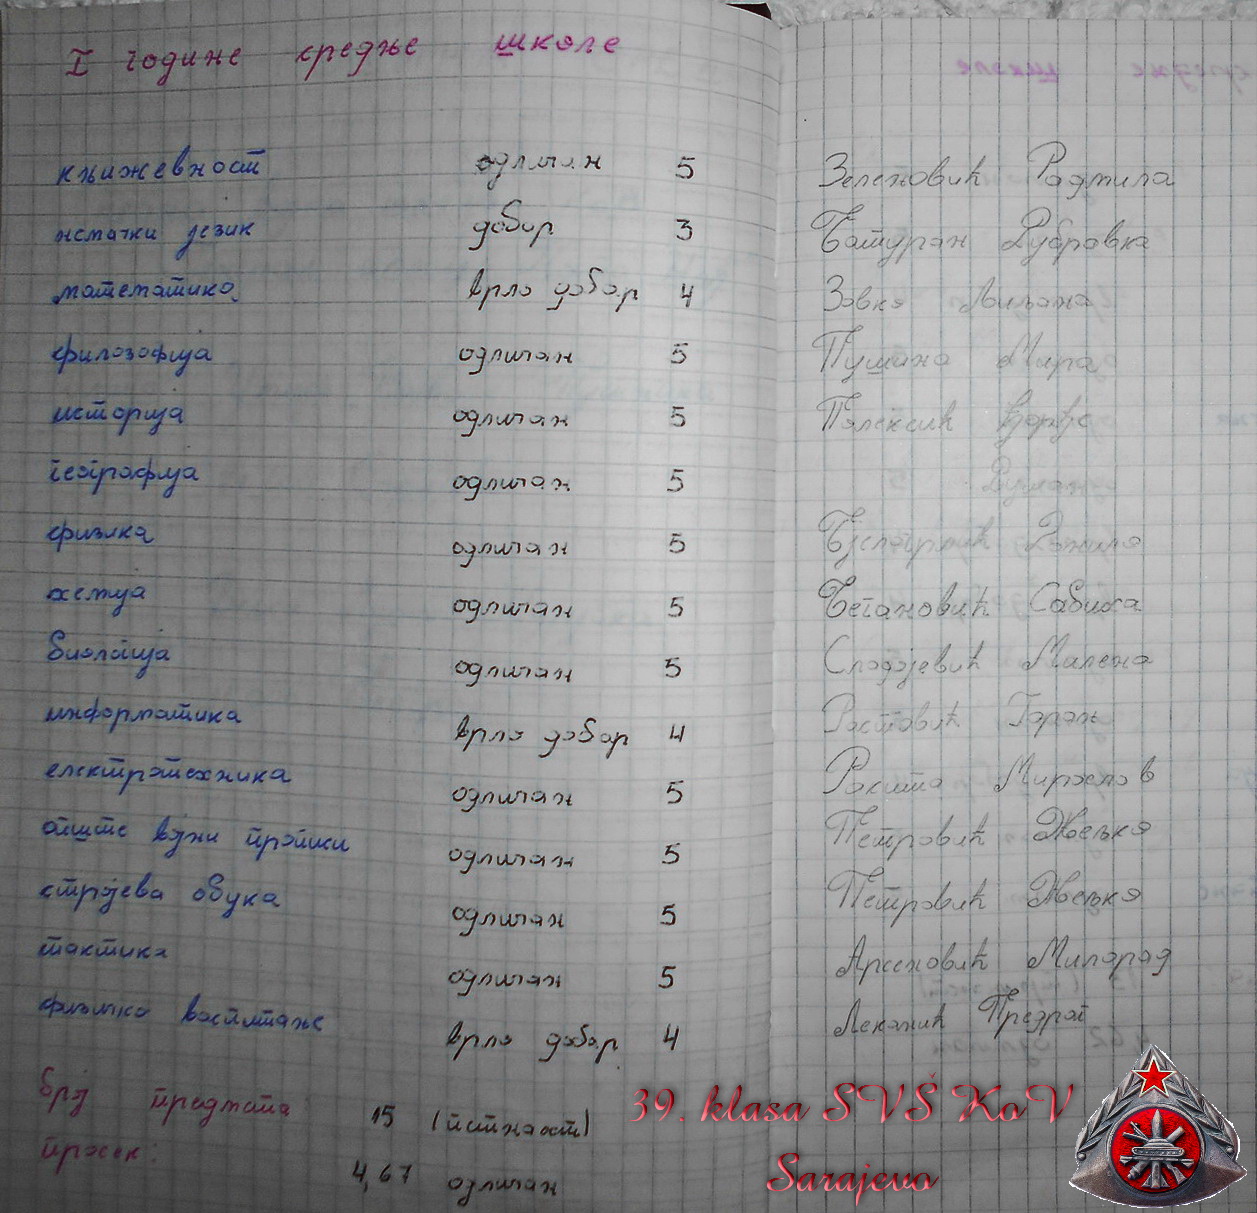 I године средње школе
књижевност одличан 5 Зеленовић Радмила
немачки језик добар 3 Батуран Дубравка
математика врло добар 4 Зовко Љиљана
филозофија одличан 5 Пушина Мира
историја одличан 5 Полексић Ђорђе
географија одличан 5
физика одличан 5
хемија одличан 5 Бегановић Сабиха
биологија одличан 5 Слодојевић Малена
информатика врло добар 4 Растовић Горан
електротехника одличан 5 Ракита Мирослав
опште војни прописи одличан 5 Петровић Жељко
стројева обука одличан 5 Петровић Жељко
тактика одличан 5 Арсеновић Милорад
физичко васпитање врло добар 4 Леканић Предраг
број предмета 15 (петнаест)
просек: 4,67 одличан
39. klasa SVŠ KoV
Sarajevo